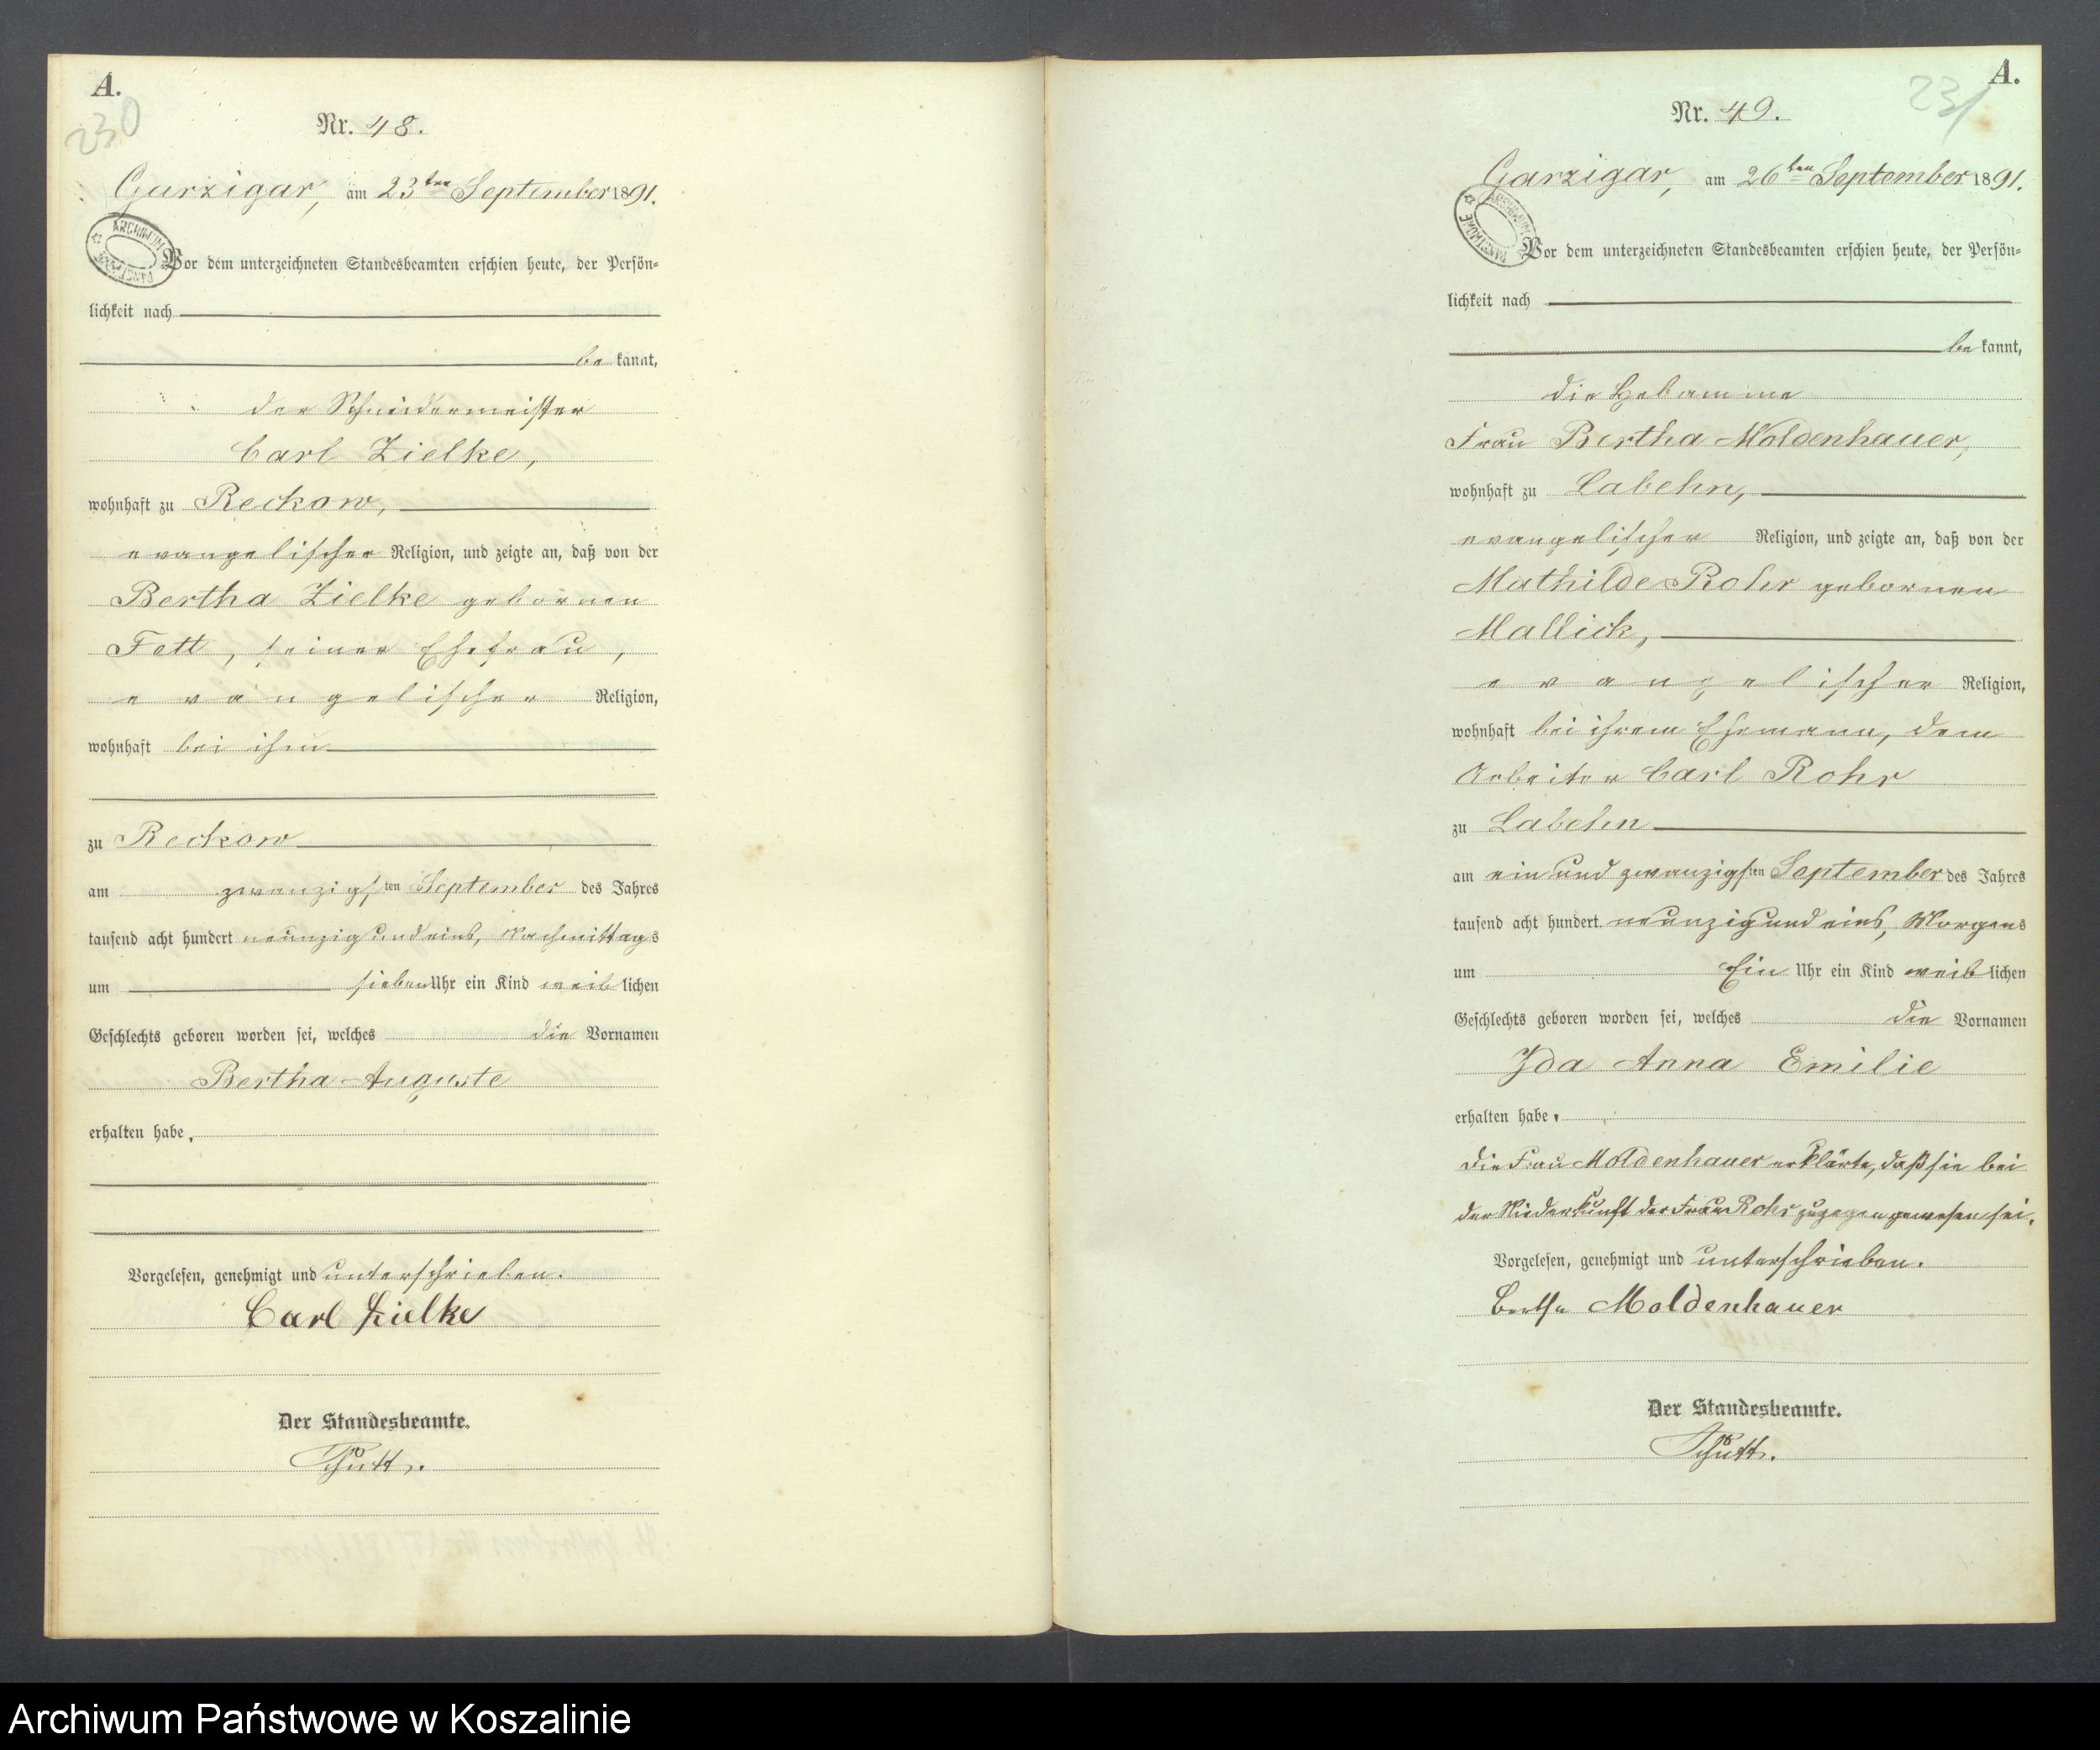 A.
230
Nr. 48.
Garzigar, am 23ten September 1891.
ARCHIWUM
Vor dem unterzeichneten Standesbeamten erschien heute, der Persön-
lichkeit nach
be kannt,
der Schneidermeister
Carl Zielke,
wohnhaft zu Reckow,
evangelischer Religion, und zeigte an, daß von der
Bertha Zielke gebornen
Fett, seiner Ehefrau,
evangelischer Religion,
wohnhaft bei ihm
zu Reckow
am zwanzigsten September des Jahres
tausend acht hundert neunzig und eins, Nachmittags
um sieben Uhr ein Kind weiblichen
Geschlechts geboren worden sei, welches die Vornamen
Bertha Auguste
erhalten habe.
Vorgelesen, genehmigt und unterschrieben.
Carl Zielke
Der Standesbeamte.
Schütt.
A.
231
Nr. 49.
Garzigar, am 26ten September 1891.
ARCHIWUM PAŃSTWOWE
Vor dem unterzeichneten Standesbeamten erschien heute, der Persön-
lichkeit nach
be kannt,
die Hebamme
Frau Bertha Moldenhauer,
wohnhaft zu Labehn,
evangelischer Religion, und zeigte an, daß von der
Mathilde Rohr gebornen
Mallick,
evangelischer Religion,
wohnhaft bei ihrem Ehemann, dem
Arbeiter Carl Rohr
zu Labehn
am ein und zwanzigsten September des Jahres
tausend acht hundert neunzig und eins, Morgens
um Ein Uhr ein Kind weiblichen
Geschlechts geboren worden sei, welches die Vornamen
Ida Anna Emilie
erhalten habe.
Die Frau Moldenhauer erklärte, daß sie bei
der Niederkunft der Frau Rohr zugegen gewesen sei.
Vorgelesen, genehmigt und unterschrieben.
Bertha Moldenhauer
Der Standesbeamte.
Schütt.
Archiwum Państwowe w Koszalinie